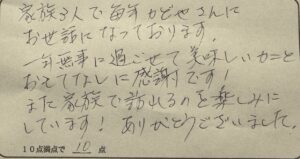 家族3人で毎年かどやさんに
お世話になっております。
一年無事に過ごせて美味しいカニと
おもてなしに感謝です!
また家族で訪れるのを楽しみに
しています! ありがとうございました。
10点満点で 10 点